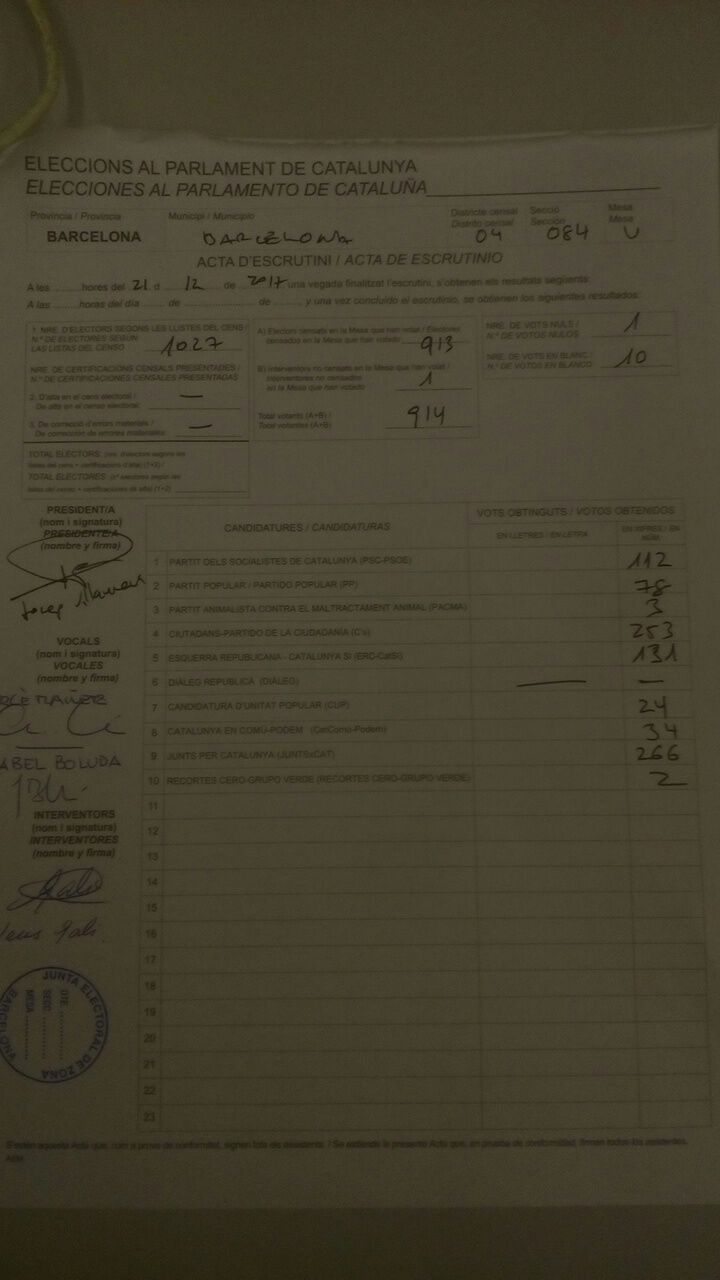 ELECCIONS AL PARLAMENT DE CATALUNYA
ELECCIONES AL PARLAMENTO DE CATALUÑA
Província / Provincia Municipi / Municipio Districte censal Secció Mesa
Distrito censal Sección Mesa
BARCELONA BARCELONA 04 084 U
ACTA D'ESCRUTINI / ACTA DE ESCRUTINIO
A les ........ hores del 21 d 12 de 2017 una vegada finalitzat l'escrutini, s'obtenen els resultats següents:
A las ........ horas del día ...... de ............ de ........, y una vez concluido el escrutinio, se obtienen los siguientes resultados:
1. NRE. D'ELECTORS SEGONS LES LLISTES DEL CENS /
N.º DE ELECTORES SEGÚN
LAS LISTAS DEL CENSO 1027
NRE. DE CERTIFICACIONS CENSALS PRESENTADES /
N.º DE CERTIFICACIONES CENSALES PRESENTADAS
2. D'alta en el cens electoral / —
De alta en el censo electoral:
3. De correcció d'errors materials / —
De corrección de errores materiales:
TOTAL ELECTORS: (nre. d'electors segons les
llistes del cens + certificacions d'alta) (1+2) /
TOTAL ELECTORES (nº electores según las
listas del censo + certificaciones de alta) (1+2)
A) Electors censats en la Mesa que han votat / Electores
censados en la Mesa que han votado 913
B) Interventors no censats en la Mesa que han votat /
Interventores no censados
en la Mesa que han votado 1
Total votants (A+B) /
Total votantes (A+B) 914
NRE. DE VOTS NULS / 1
N.º DE VOTOS NULOS
NRE. DE VOTS EN BLANC / 10
N.º DE VOTOS EN BLANCO
PRESIDENT/A
(nom i signatura)
PRESIDENTE/A
(nombre y firma)
Josep
VOCALS
(nom i signatura)
VOCALES
(nombre y firma)
ABEL BOLUDA
INTERVENTORS
(nom i signatura)
INTERVENTORES
(nombre y firma)
CANDIDATURES / CANDIDATURAS VOTS OBTINGUTS / VOTOS OBTENIDOS
EN LLETRES / EN LETRA EN XIFRES / EN NÚM.
1 PARTIT DELS SOCIALISTES DE CATALUNYA (PSC-PSOE) 112
2 PARTIT POPULAR / PARTIDO POPULAR (PP) 78
3 PARTIT ANIMALISTA CONTRA EL MALTRACTAMENT ANIMAL (PACMA) 3
4 CIUTADANS-PARTIDO DE LA CIUDADANÍA (C's) 253
5 ESQUERRA REPUBLICANA - CATALUNYA SÍ (ERC-CatSí) 131
6 DIÀLEG REPUBLICÀ (DIÀLEG) — —
7 CANDIDATURA D'UNITAT POPULAR (CUP) 24
8 CATALUNYA EN COMÚ-PODEM (CatComú-Podem) 34
9 JUNTS PER CATALUNYA (JUNTSxCAT) 266
10 RECORTES CERO-GRUPO VERDE (RECORTES CERO-GRUPO VERDE) 2
11
12
13
14
15
16
17
18
19
20
21
22
23
JUNTA ELECTORAL DE ZONA
BARCELONA
DTE. ............
SECC. ............
MESA ............
S'estén aquesta Acta que, com a prova de conformitat, signen tots els assistents. / Se extiende la presente Acta que, en prueba de conformidad, firman todos los asistentes.